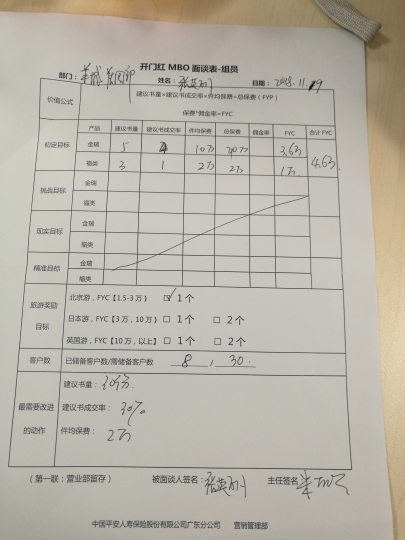 开门红 MBO 面谈表-组员
部门： 姓名： 日期：2018.11.19
价值公式 建议书量×建议书成交率×件均保费=总保费（FYP）
保费*佣金率=FYC
产品 建议书量 建议书成交率 件均保费 总保费 佣金率 FYC 合计 FYC
初定目标 金瑞 5 10万 20万 3.6万 4.6万
福类 3 1 2万 2万 1万
挑战目标 金瑞
福类
现实目标 金瑞
福类
精准目标 金瑞
福类
旅游奖励
目标
北京游，FYC【1.5-3 万】 ☑ 1 个
日本游，FYC【3 万，10 万】 □ 1 个 □ 2 个
英国游，FYC【10 万，以上】 □ 1 个 □ 2 个
客户数 已储备客户数/需储备客户数 8 , 30
最需要改进
的动作
建议书量：30份
建议书成交率：30%
件均保费：2万
（第一联：营业部留存） 被面谈人签名： 主任签名
中国平安人寿保险股份有限公司广东分公司 营销管理部